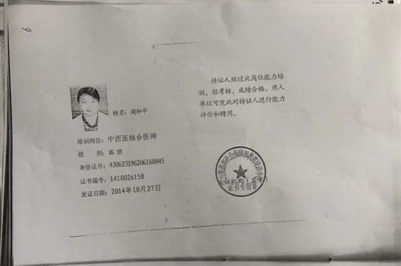 姓名：周和平
培训岗位：中西医结合医师
级 别：高 级
身份证号：430623196206160945
证书编号：1410026150
发证日期：2014年10月27日
持证人经过此岗位能力培
训，经考核，成绩合格。用人
单位可凭此对持证人进行能力
评价和聘用。
证书专用章